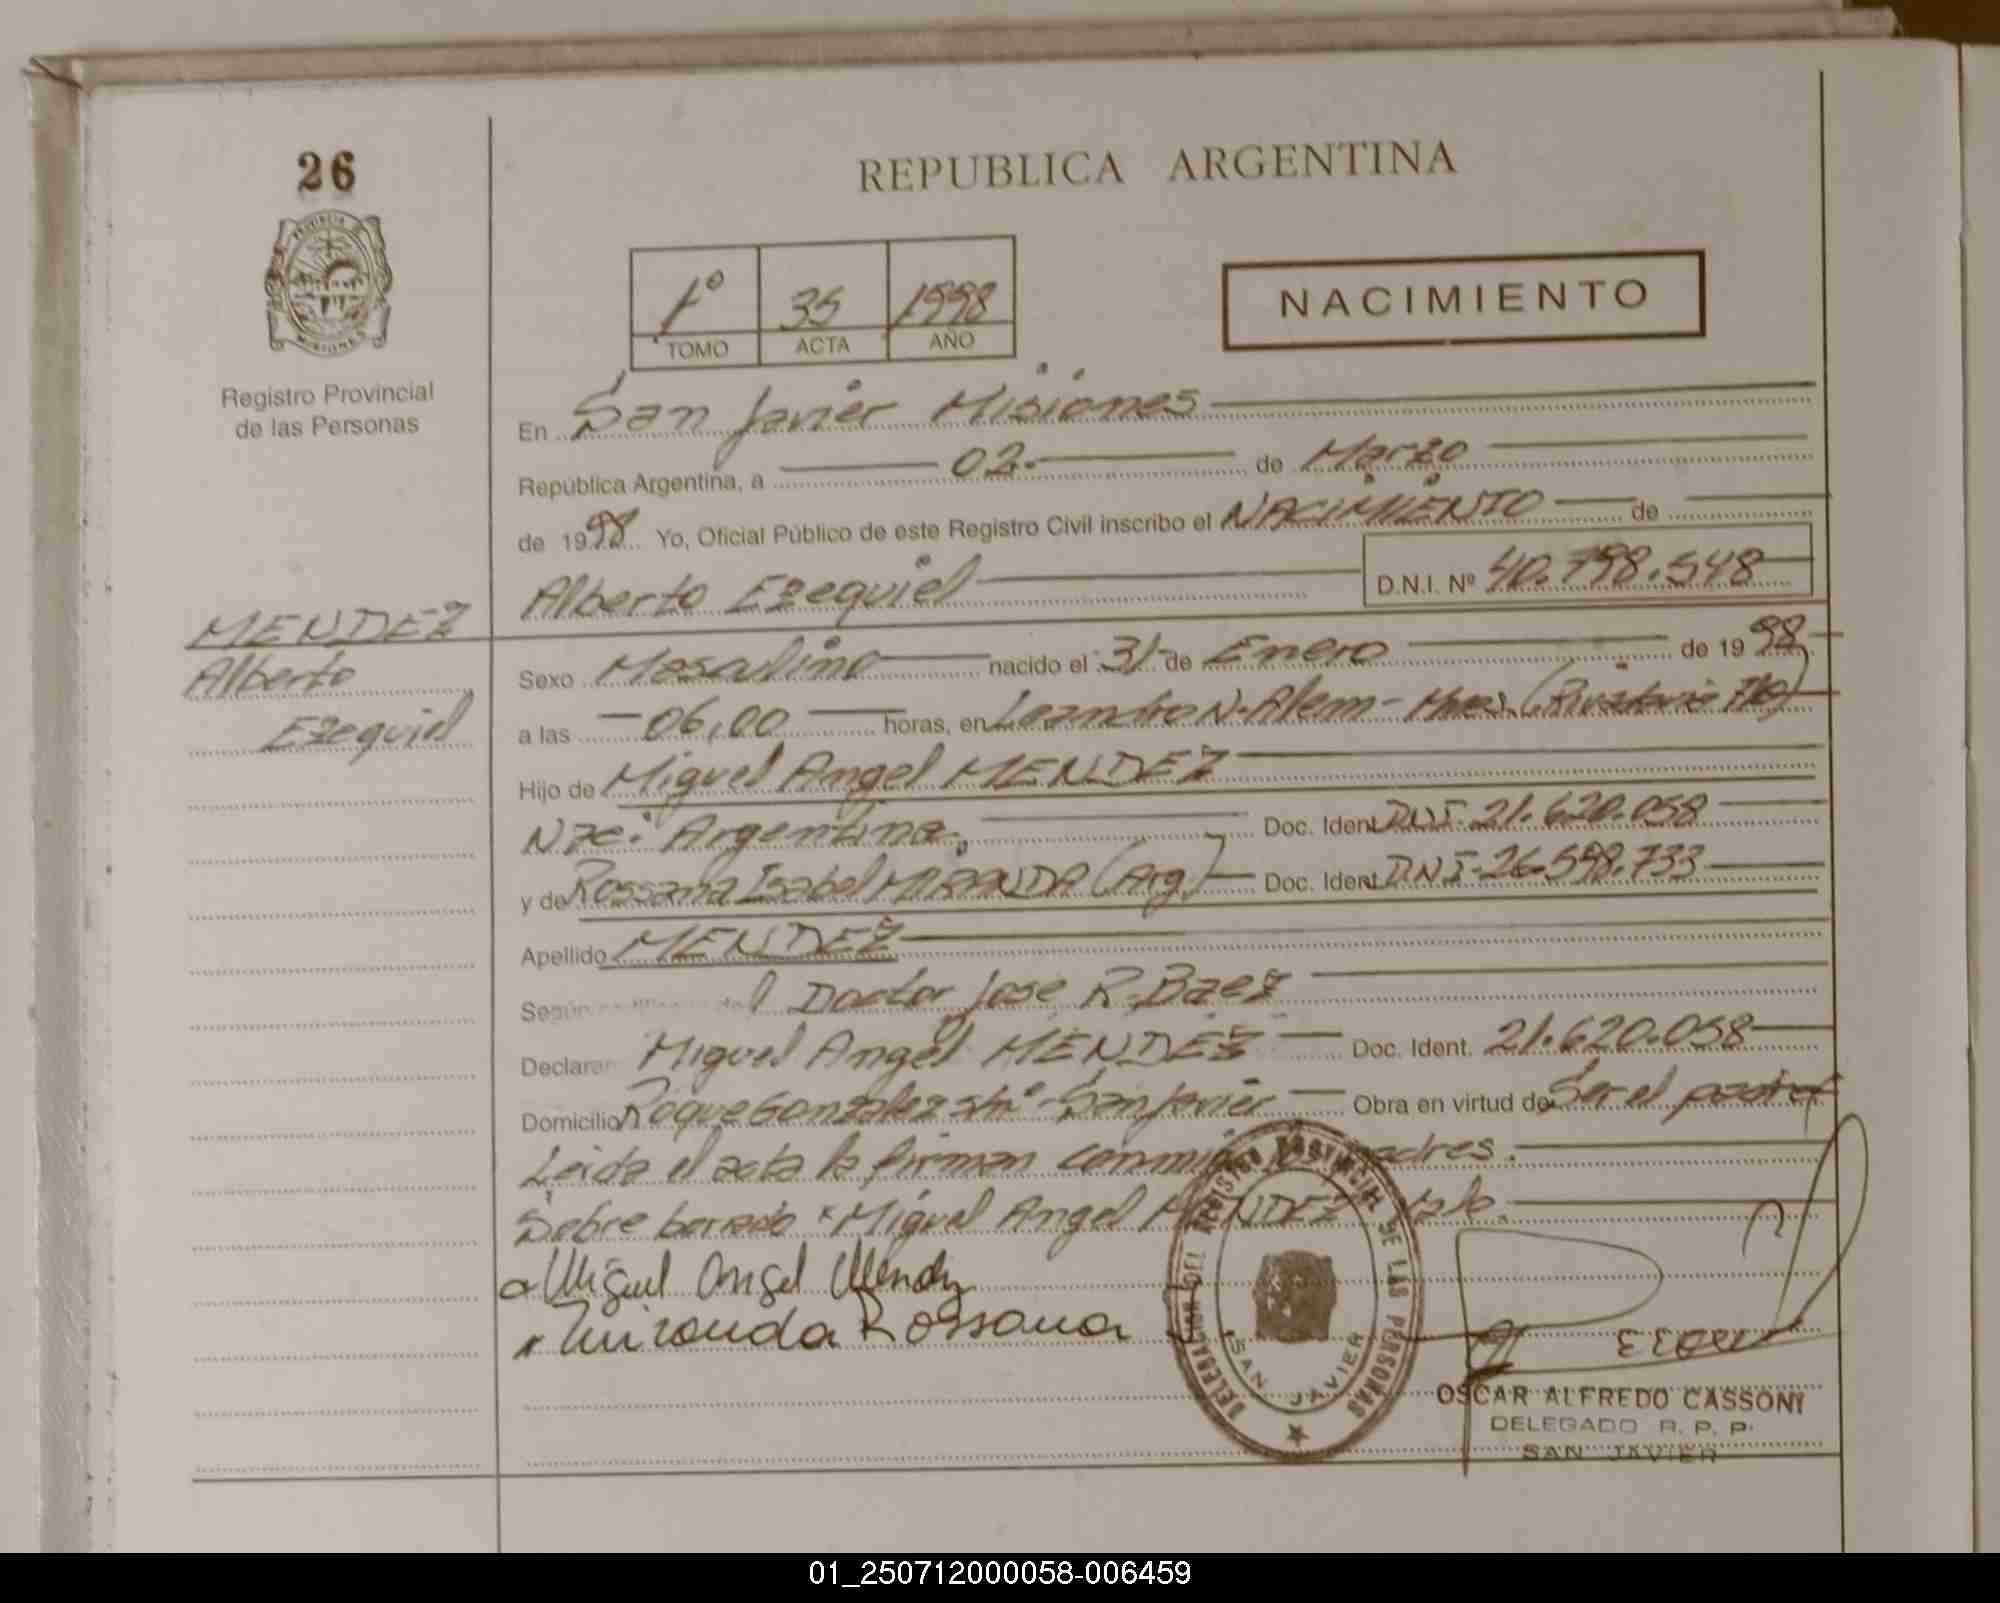 26
REPUBLICA ARGENTINA
PROVINCIA DE
MISIONES
Registro Provincial
de las Personas
1º 35 1998
TOMO ACTA AÑO
NACIMIENTO
En San Javier Misiones
República Argentina, a 02 de Marzo
de 1998 Yo, Oficial Público de este Registro Civil inscribo el NACIMIENTO de
Alberto Ezequiel D.N.I. Nº 40.798.548
MENDEZ
Alberto
Ezequiel
Sexo Masculino nacido el 31 de Enero de 1998
a las 06,00 horas, en Leandro N. Alem -
Hijo de Miguel Angel MENDEZ
Nac. Argentina. Doc. Ident D.N.I. 21.620.058
y de Rossana Isabel MIRANDA (Arg) Doc. Ident D.N.I. 26.598.733
Apellido MENDEZ
Según Doctor Jose R. Baez
Declaran Miguel Angel MENDEZ Doc. Ident. 21.620.058
Domicilio Roque Gonzalez s/nº - San Javier Obra en virtud de Ser el padre
Leida el acta la firman conmigo padres.
Sobre borrado "Miguel Angel MENDEZ vale.
Miguel Angel Mendez
Miranda Rossana
DELEGACION DEL REGISTRO PROVINCIAL DE LAS PERSONAS
SAN JAVIER
OSCAR ALFREDO CASSONI
DELEGADO R. P. P.
SAN JAVIER
01_250712000058-006459